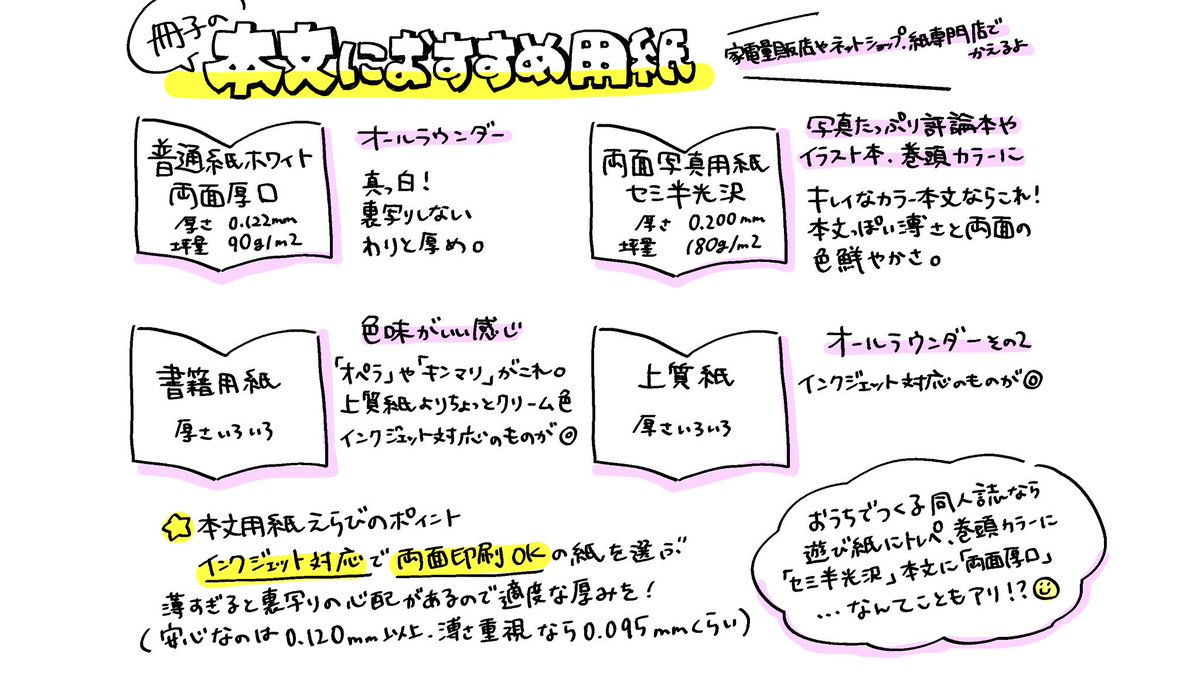 冊子の
本文におすすめ用紙
家電量販店やネットショップ、紙専門店で
かえるよ
普通紙ホワイト
両面厚口
厚さ 0.122mm
坪量 90g/m2
オールラウンダー
真っ白!
裏写りしない
わりと厚め。
両面写真用紙
セミ半光沢
厚さ 0.200mm
坪量 180g/m2
写真たっぷり評論本や
イラスト本、巻頭カラーに
キレイなカラー本文ならこれ!
本文っぽい薄さと両面の
色鮮やかさ。
書籍用紙
厚さいろいろ
色味がいい感じ
「オペラ」や「キンマリ」がこれ。
上質紙よりちょっとクリーム色
インクジェット対応のものが◎
上質紙
厚さいろいろ
オールラウンダーその2
インクジェット対応のものが◎
☆本文用紙えらびのポイント
インクジェット対応で両面印刷OKの紙を選ぶ
薄すぎると裏写りの心配があるので適度な厚みを!
(安心なのは0.120mm以上、薄さ重視なら0.095mmくらい)
おうちでつくる同人誌なら
遊び紙にトレペ、巻頭カラーに
「セミ半光沢」本文に「両面厚口」
...なんてこともアリ!?